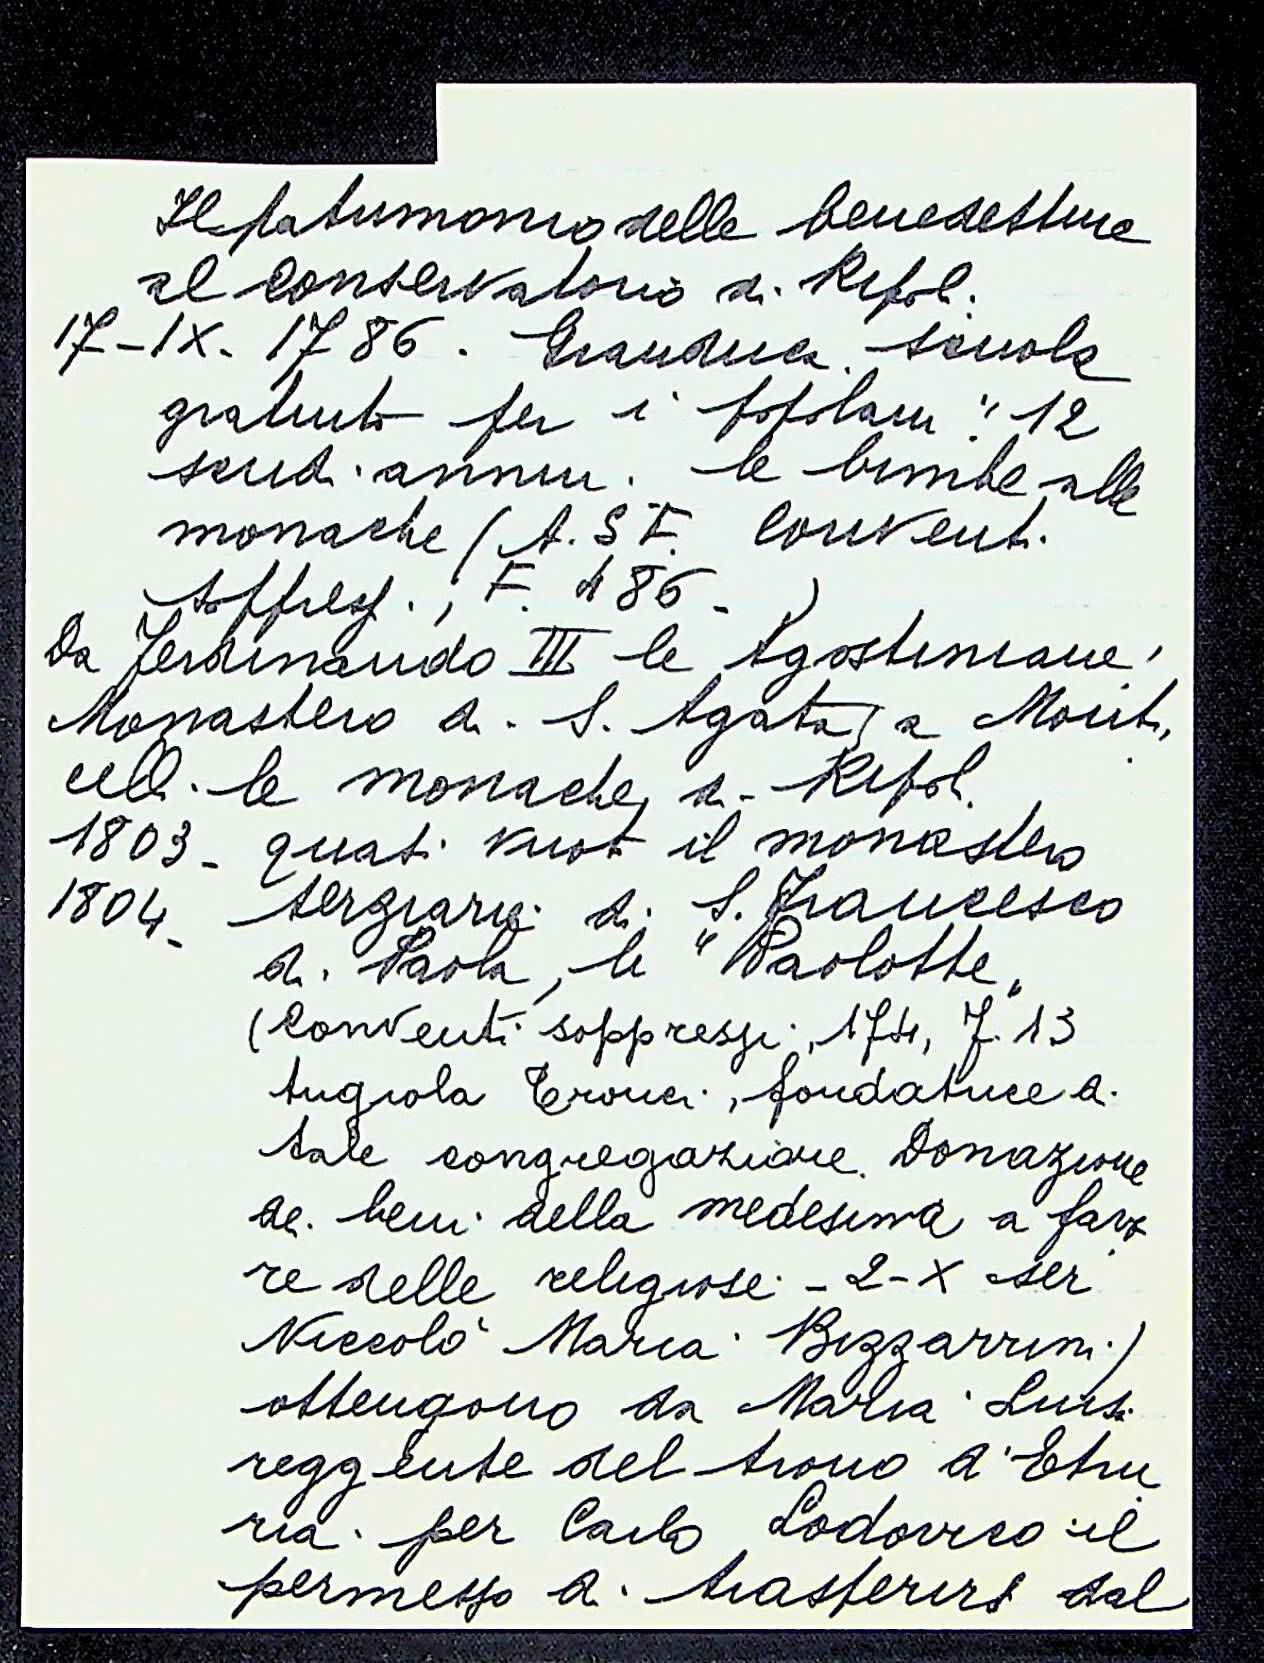 Il patrimonio delle benedettine
al Conservatorio di Ripoli.
17-IX-1786. Granduca. scuola
gratuita per i popolani: 12
scudi annui. le bimbe alle
monache (A.S.F. Conventi
Soppressi, F. 486-)
Da Ferdinando III le Agostiniane:
Monastero di S. Agata, a Monti,
celli le monache di Ripoli.
1803- quasi vuoto il monastero
1804- terziarie di S. Francesco
di Paola, le "Paolotte"
(Conventi soppressi, 174, F. 13
Angiola Tronci, fondatrice di
tale congregazione. Donazione
dei beni della medesima a favo
re delle religiose - 2-X ser
Niccolò Maria Bizzarrini)
ottengono da Maria Luisa
reggente del trono d'Etru
ria per Carlo Lodovico il
permesso di trasferirsi dal